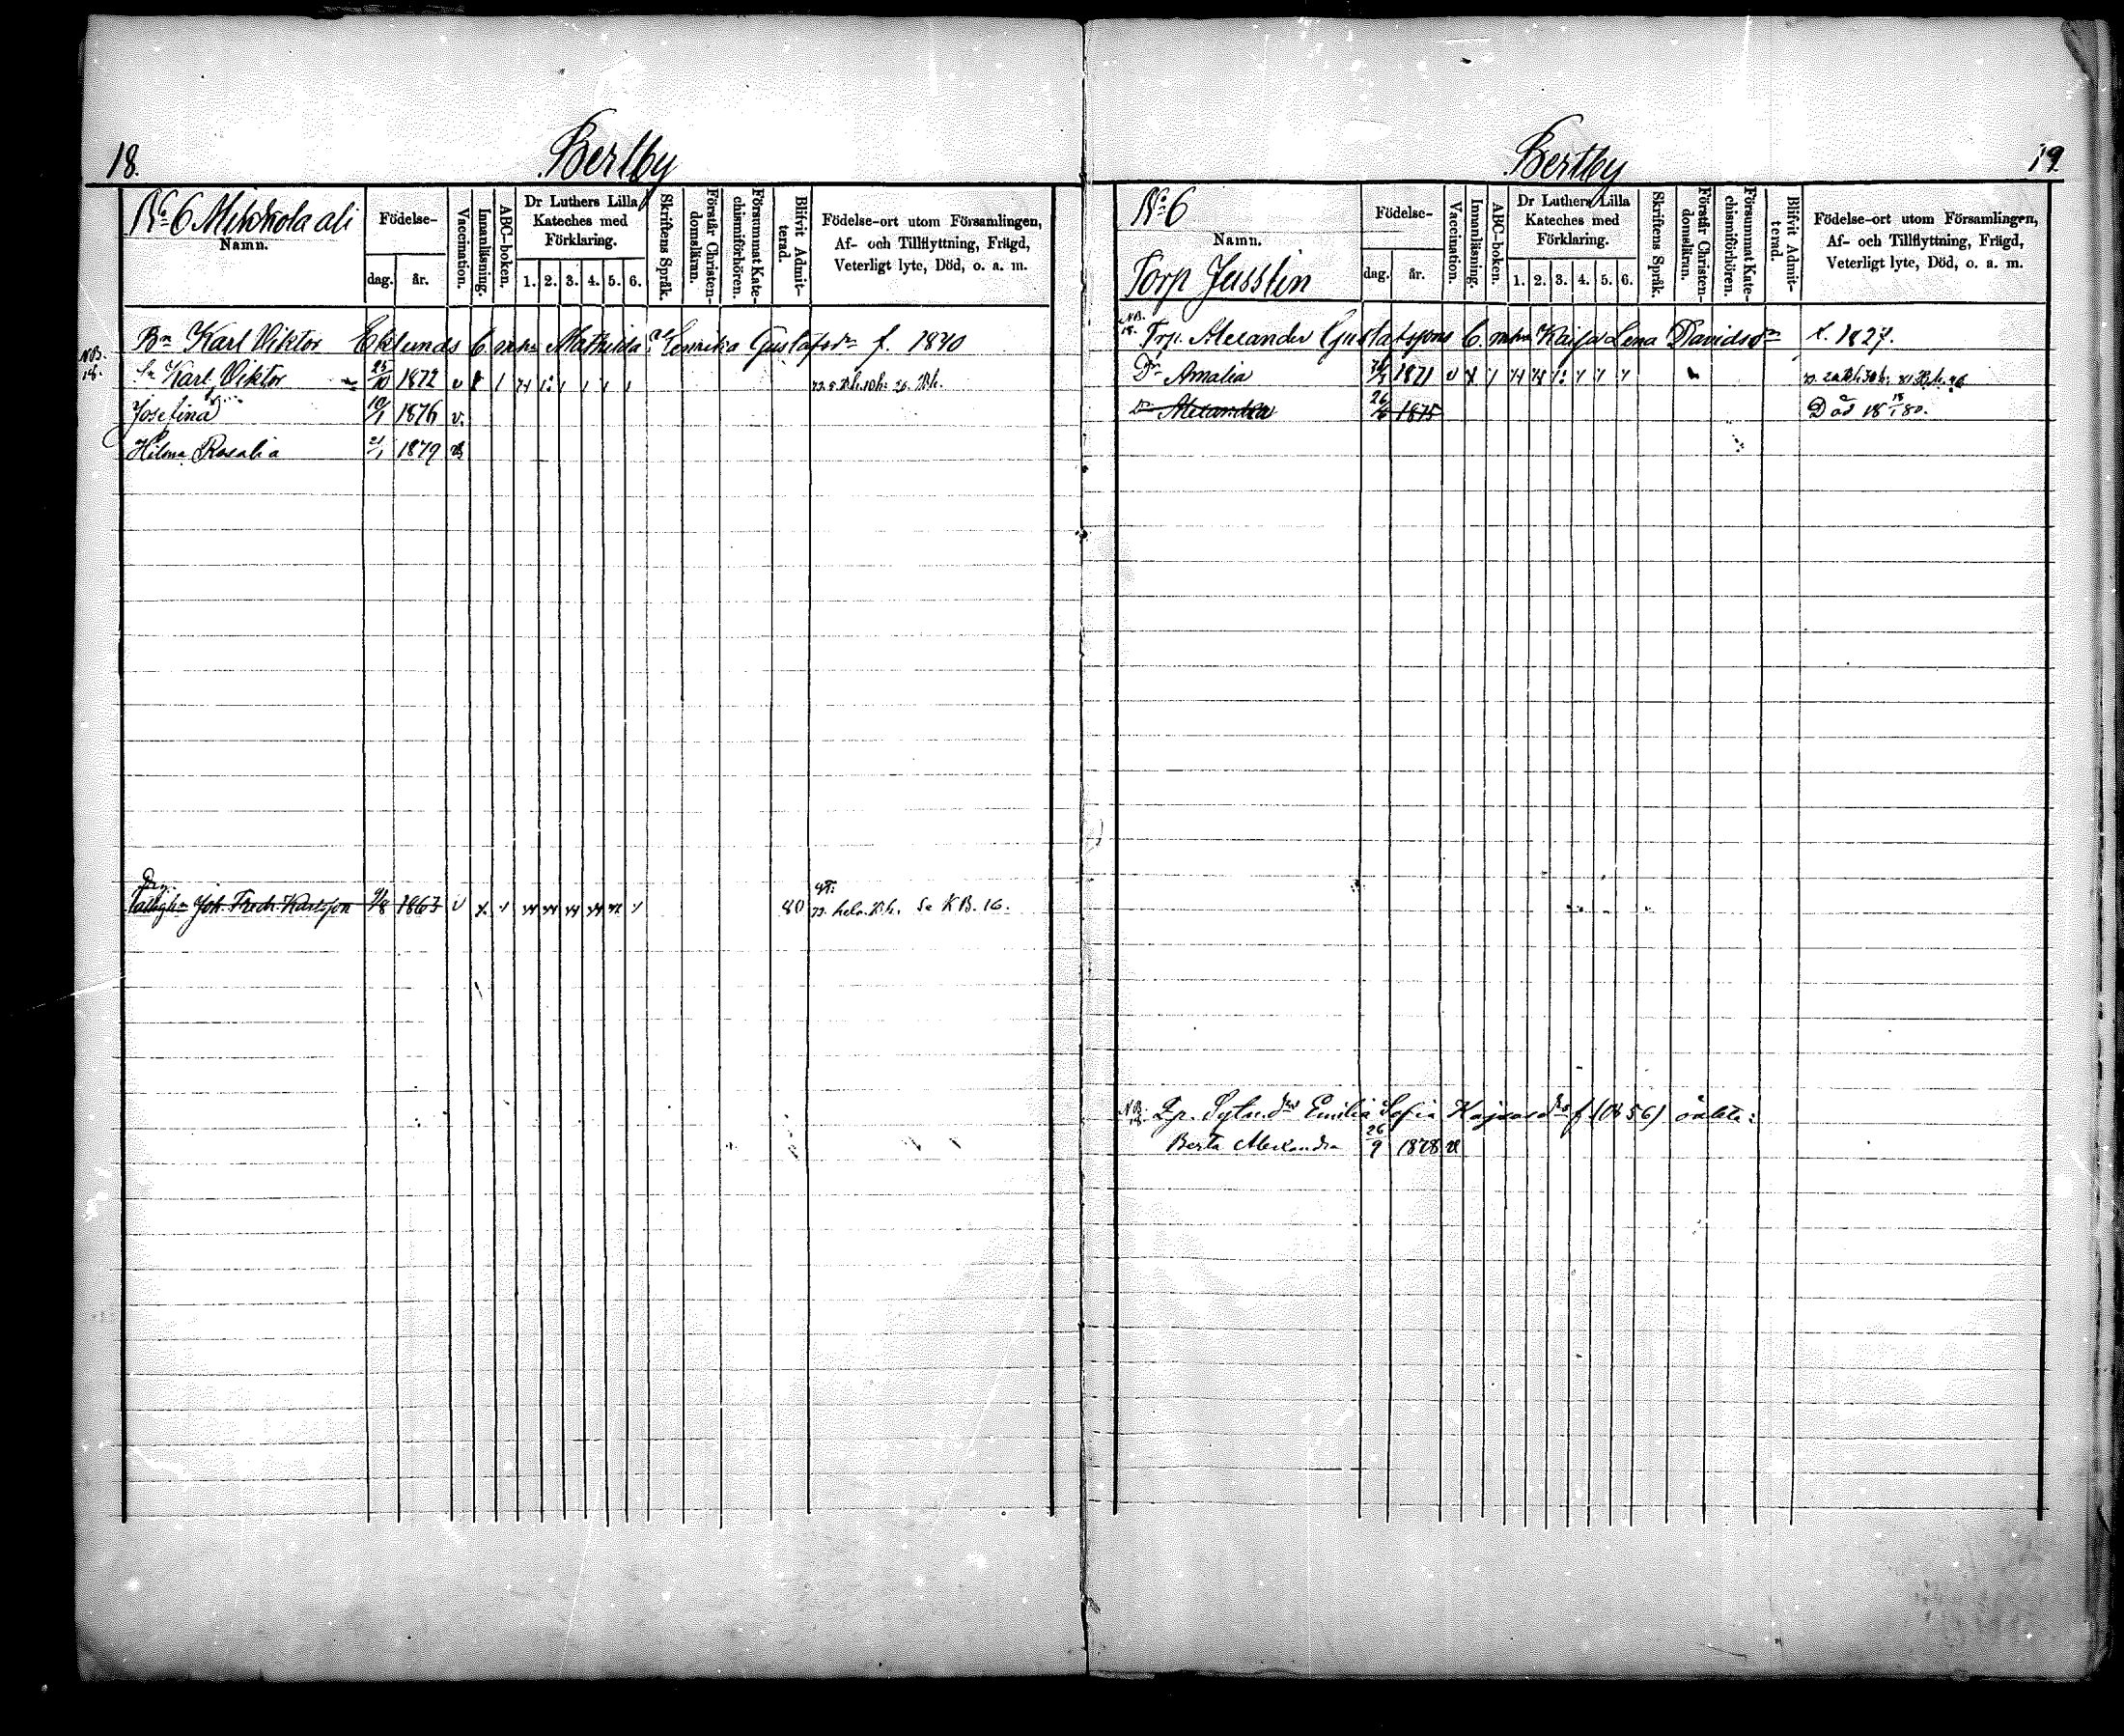 18.
Bertby
No 6 Mikkola ali
Namn.
Födelse-
dag.
år.
Vaccination.
Innanläsning.
ABC-boken.
Dr Luthers Lilla
Kateches med
Förklaring.
1. 2. 3. 4. 5. 6.
Skriftens Språk.
Förstår Christen-
domsläran.
Försummat Kate-
chismiförhören.
Blifvit Admit-
terad.
Födelse-ort utom Församlingen,
Af- och Tillflyttning, Frägd,
Veterligt lyte, Död, o. a. m.
Bn Karl Viktor Eklunds C. m. hu Mathilda Henrika Gustafsdr f. 1840
NB. 18. Sn Karl Viktor 25/10 1872 v
Josefina 10/1 1876 v.
Hilma Rosalia 2/1 1879 v
Joh. Fredr. Karlsson 9/8 1863 v 80 Se KB. 16.
19.
Bertby
No 6
Namn.
Torp Jusslin
Födelse-
dag.
år.
Vaccination.
Innanläsning.
ABC-boken.
Dr Luthers Lilla
Kateches med
Förklaring.
1. 2. 3. 4. 5. 6.
Skriftens Språk.
Förstår Christen-
domsläran.
Försummat Kate-
chismiförhören.
Blifvit Admit-
terad.
Födelse-ort utom Församlingen,
Af- och Tillflyttning, Frägd,
Veterligt lyte, Död, o. a. m.
NB. 18. Trp. Alexander Gustafssons C. m. hu Kajsa Lena Davidsdr f. 1827.
Dr Amalia 1871 v
Dr Alexandra 1875 Död 18 18/1 80.
NB. 18. Emilia Sofia f (1856) oäkta:
Berta Alexandra 26/9 1878 v